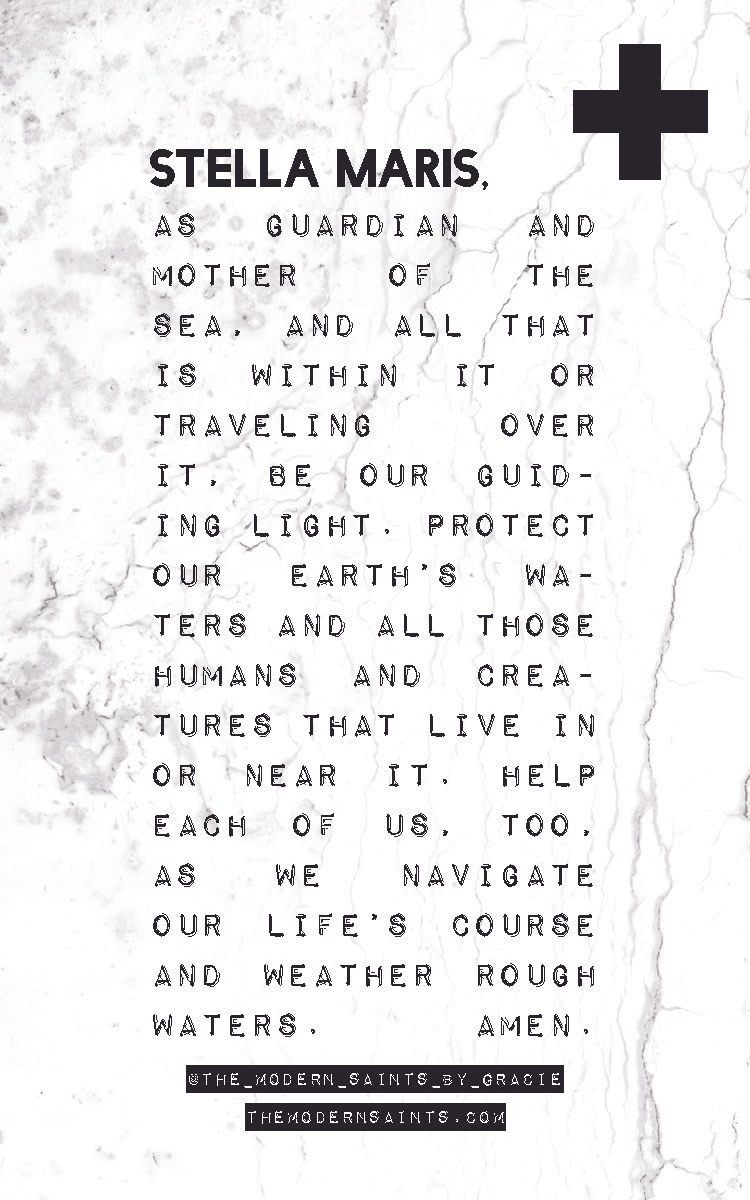 STELLA MARIS,
AS GUARDIAN AND
MOTHER OF THE
SEA, AND ALL THAT
IS WITHIN IT OR
TRAVELING OVER
IT, BE OUR GUID-
ING LIGHT. PROTECT
OUR EARTH'S WA-
TERS AND ALL THOSE
HUMANS AND CREA-
TURES THAT LIVE IN
OR NEAR IT. HELP
EACH OF US, TOO,
AS WE NAVIGATE
OUR LIFE'S COURSE
AND WEATHER ROUGH
WATERS. AMEN.
@THE_MODERN_SAINTS_BY_GRACIE
THEMODERNSAINTS.COM